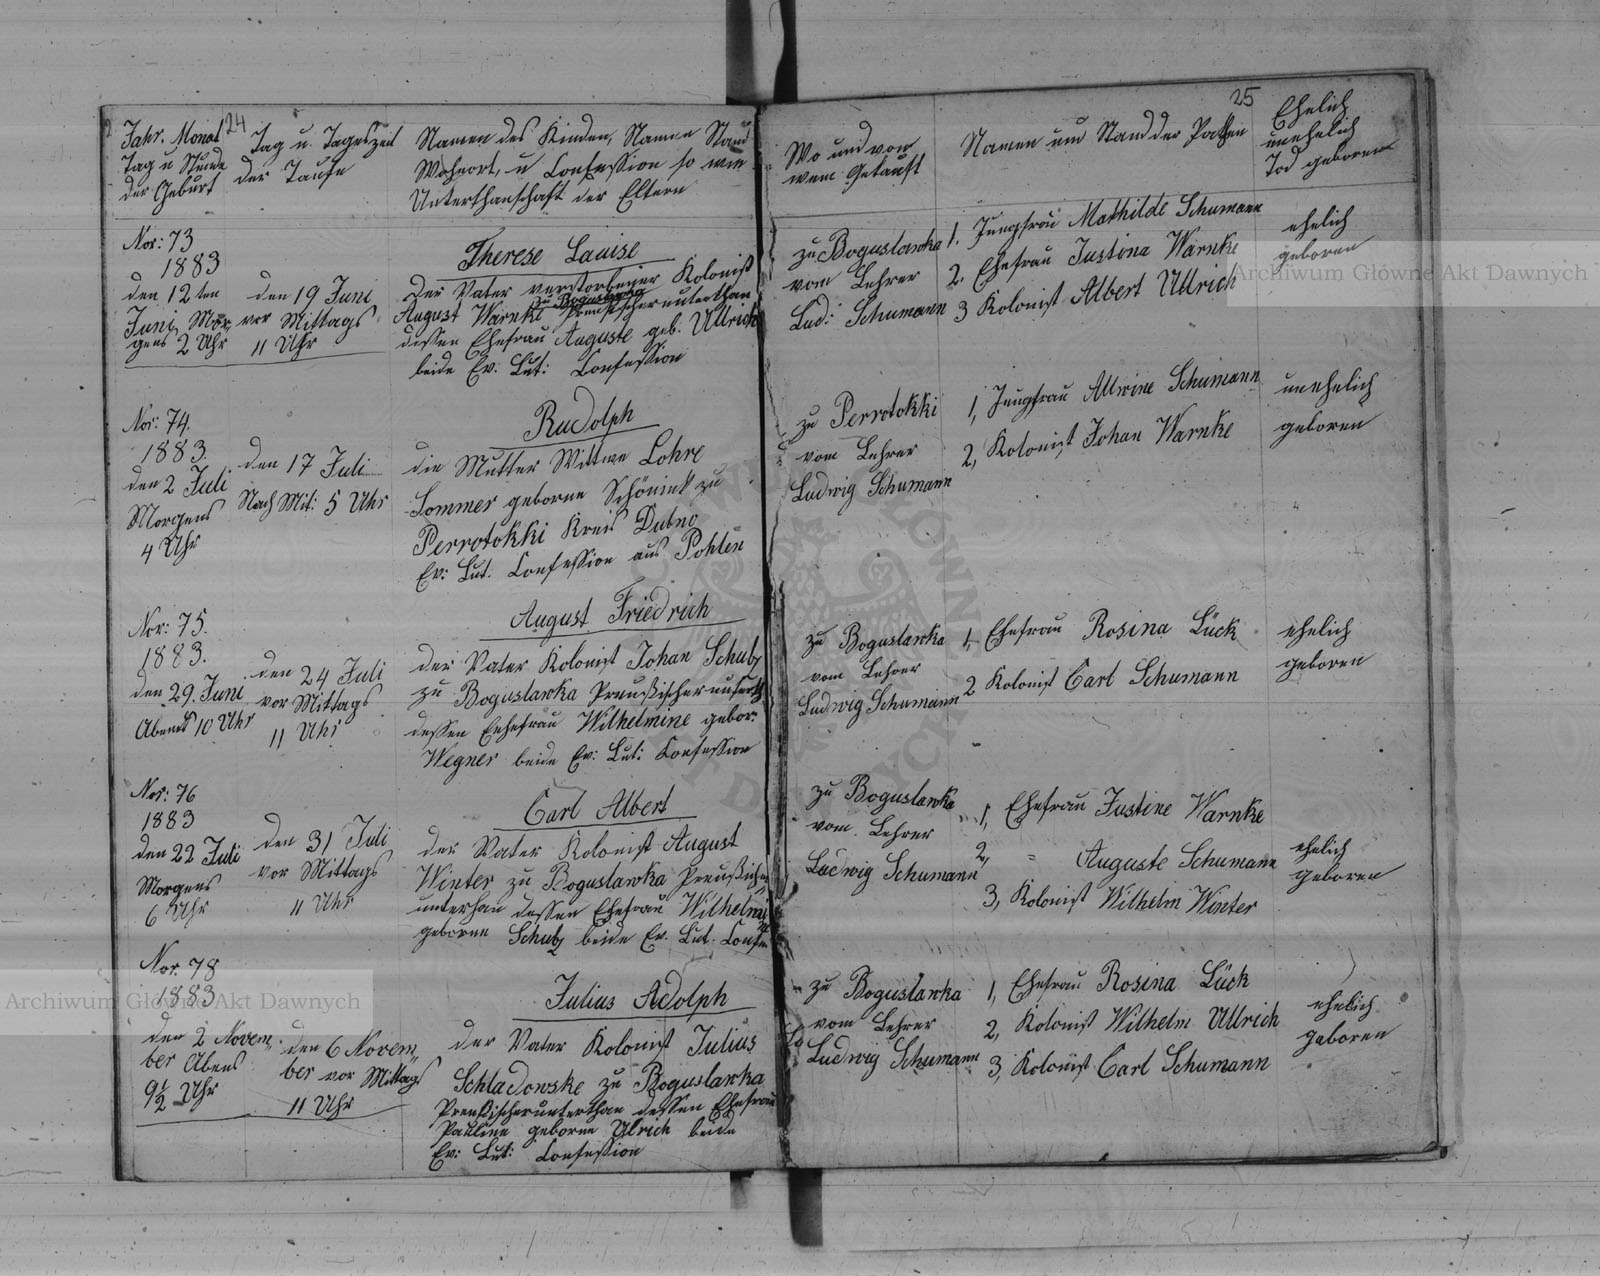 24
Jahr. Monat
Tag u Stunde
der Geburt
Tag u. Tageszeit
der Taufe
Namen des Kindes, Name Stand
Wohnort, u Confession so wie
Unterthanschaft der Eltern
Nor: 73
1883
den 12ten
Juni, Mor,
gens 2 Uhr
den 19 Juni
vor Mittags
11 Uhr
Therese Lauise
Der Vater verstorbener Kolonist
zu Boguslawka
August Warnke Preußischerunterthan
dessen Ehefrau Auguste geb. Ullrich
beide Ev. Lut: Confession
Nor: 74.
1883.
den 2 Juli
Morgens
4 Uhr
den 17 Juli
Nach Mit: 5 Uhr
Rudolph
die Mutter Wittwe Lohre
Sommer geborne Schönink zu
Perrotokki Kreis Dubno
Ev: Lut. Confession aus Pohlen
Nor: 75.
1883.
den 29. Juni
Abends 10 Uhr
den 24 Juli
vor Mittags
11 Uhr
August Friedrich
der Vater Kolonist Johan Schulz
zu Boguslawka Preußischerunterth
dessen Enhefrau Wilhelmine gebor:
Wegner beide Ev: Lut: Confession
Nor: 76
1883
den 22 Juli
Morgens
6 Uhr
den 31 Juli
vor Mittags
11 Uhr
Carl Albert
der Vater Kolonist August
Winter zu Boguslawka Preußicher
unterhan dessen Ehefrau Wilhelmine
geborne Schulz beide Ev. Lut. Confes
Nor. 78
1883
den 2 Novem,
ber Abens
9 1/2 Uhr
den 6 Novem,
ber vor Mittags
11 Uhr
Julius Adolph
der Vater Kolonist Julius
Schladowske zu Boguslawka
Preußischerunterthan dessen Ehefrau
Pauline geborne Ulrich beide
Ev: Lut: Confession
25
Wo und von
wem Getauft
Namen und Stand der Pathen
Ehelich
unehelich
Tod geboren
zu Boguslawka
vom Lehrer
Lud: Schumann
1. Jungfrau Mathilde Schumann
2. Ehefrau Justina Warnke
3 Kolonist Albert Ullrich
ehelich
geboren
zu Perrotokki
vom Lehrer
Ludwig Schumann
1, Jungfrau Allwine Schumann
2, Kolonist Johan Warnke
unehelich
geboren
zu Boguslawka
vom Lehrer
Ludwig Schumann
1, Ehefrau Rosina Lück
2 Kolonist Carl Schumann
ehelich
geboren
zu Boguslawka
vom Lehrer
Ludwig Schumann
1, Ehefrau Justine Warnke
2, " Auguste Schumann
3, Kolonist Wilhelm Winter
ehelich
geboren
zu Boguslawka
vom Lehrer
Ludwig Schumann
1, Ehefrau Rosina Lück
2, Kolonist Wilhelm Ullrich
3, Kolonist Carl Schumann
ehelich
geboren
Archiwum Główne Akt Dawnych
Archiwum Główne Akt Dawnych